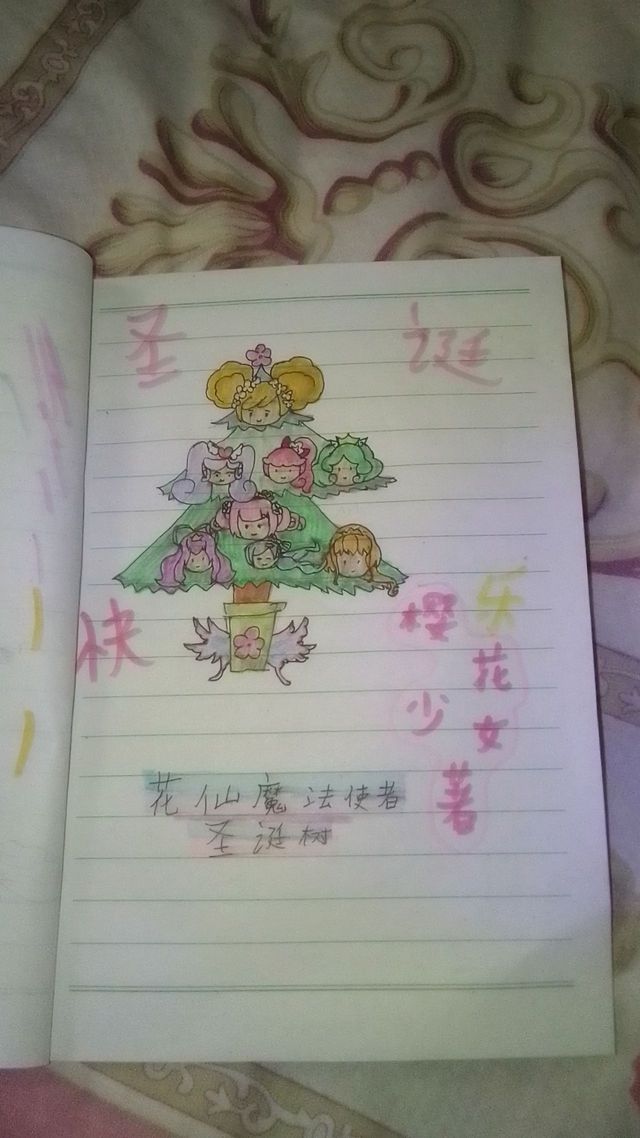 圣 诞
快 乐
樱花少女著
花仙魔法使者
圣诞树